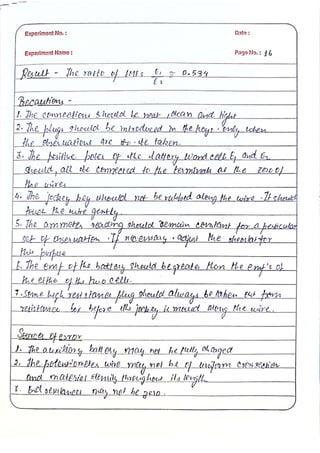 Experiment No. : Date :
Experiment Name : Page No. : 16
Result - The ratio of EMFs E1/E2 = 0.534
Precautions -
1. The connections should be neat, clean and tight
2. The plugs should be introduced in the keys only when
the observations are to be taken.
3. The positive poles of the battery and cells E1 and E2
should, all be connected to the terminals at the zero of
the wires
4. The jockey key should not be rubbed along the wire. It should
touch the wire gently.
5. The ammeter reading should remain constant for a particular
set of observation. If necessary, adjust the rheostat for
this purpose
6. The emf of the battery should be greater than the emf's of
the either of the two cells.
7. Some high resistance plug should always be taken out from
resistance box before the jockey is moved along the wire.
Sources of error
1. The auxiliary battery may not be fully charged
2. The potentiometer wire may not be of uniform cross section
and material density throughout its length.
3. End resistances may not be zero.